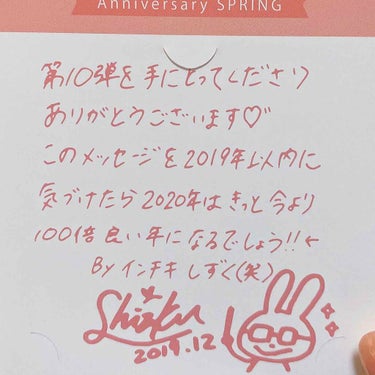 Anniversary SPRING
第10弾を手にとってくださり
ありがとうございます♡
このメッセージを2019年以内に
気づけたら2020年はきっと今より
100倍良い年になるでしょう!!←
By インチキしずく(笑)
Shizuku
2019.12